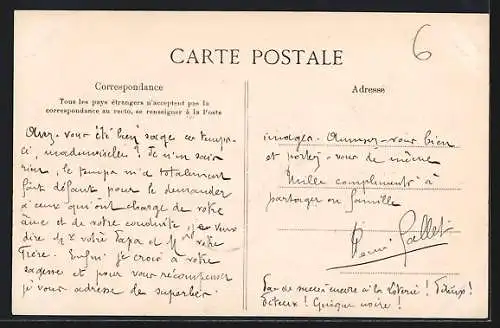 6
CARTE POSTALE
Correspondance
Tous les pays étrangers n'acceptent pas la
correspondance au recto, se renseigner à la Poste
Avez-vous été bien sage ce temps-
ci, mademoiselle ? Je n'en sais
rien, le temps m'a totalement
fait défaut pour le demander
à ceux qui ont charge de votre
âme et de votre conduite, je veux
dire Mr votre Papa et Mr votre
frère. Enfin je crois à votre
sagesse et pour vous récompenser
je vous adresse de superbes
Adresse
images. Amusez-vous bien
et portez-vous de même
Mille compliments à
partager en famille
Gallet
Pas de succès encore à la loterie !
! Guigne noire !